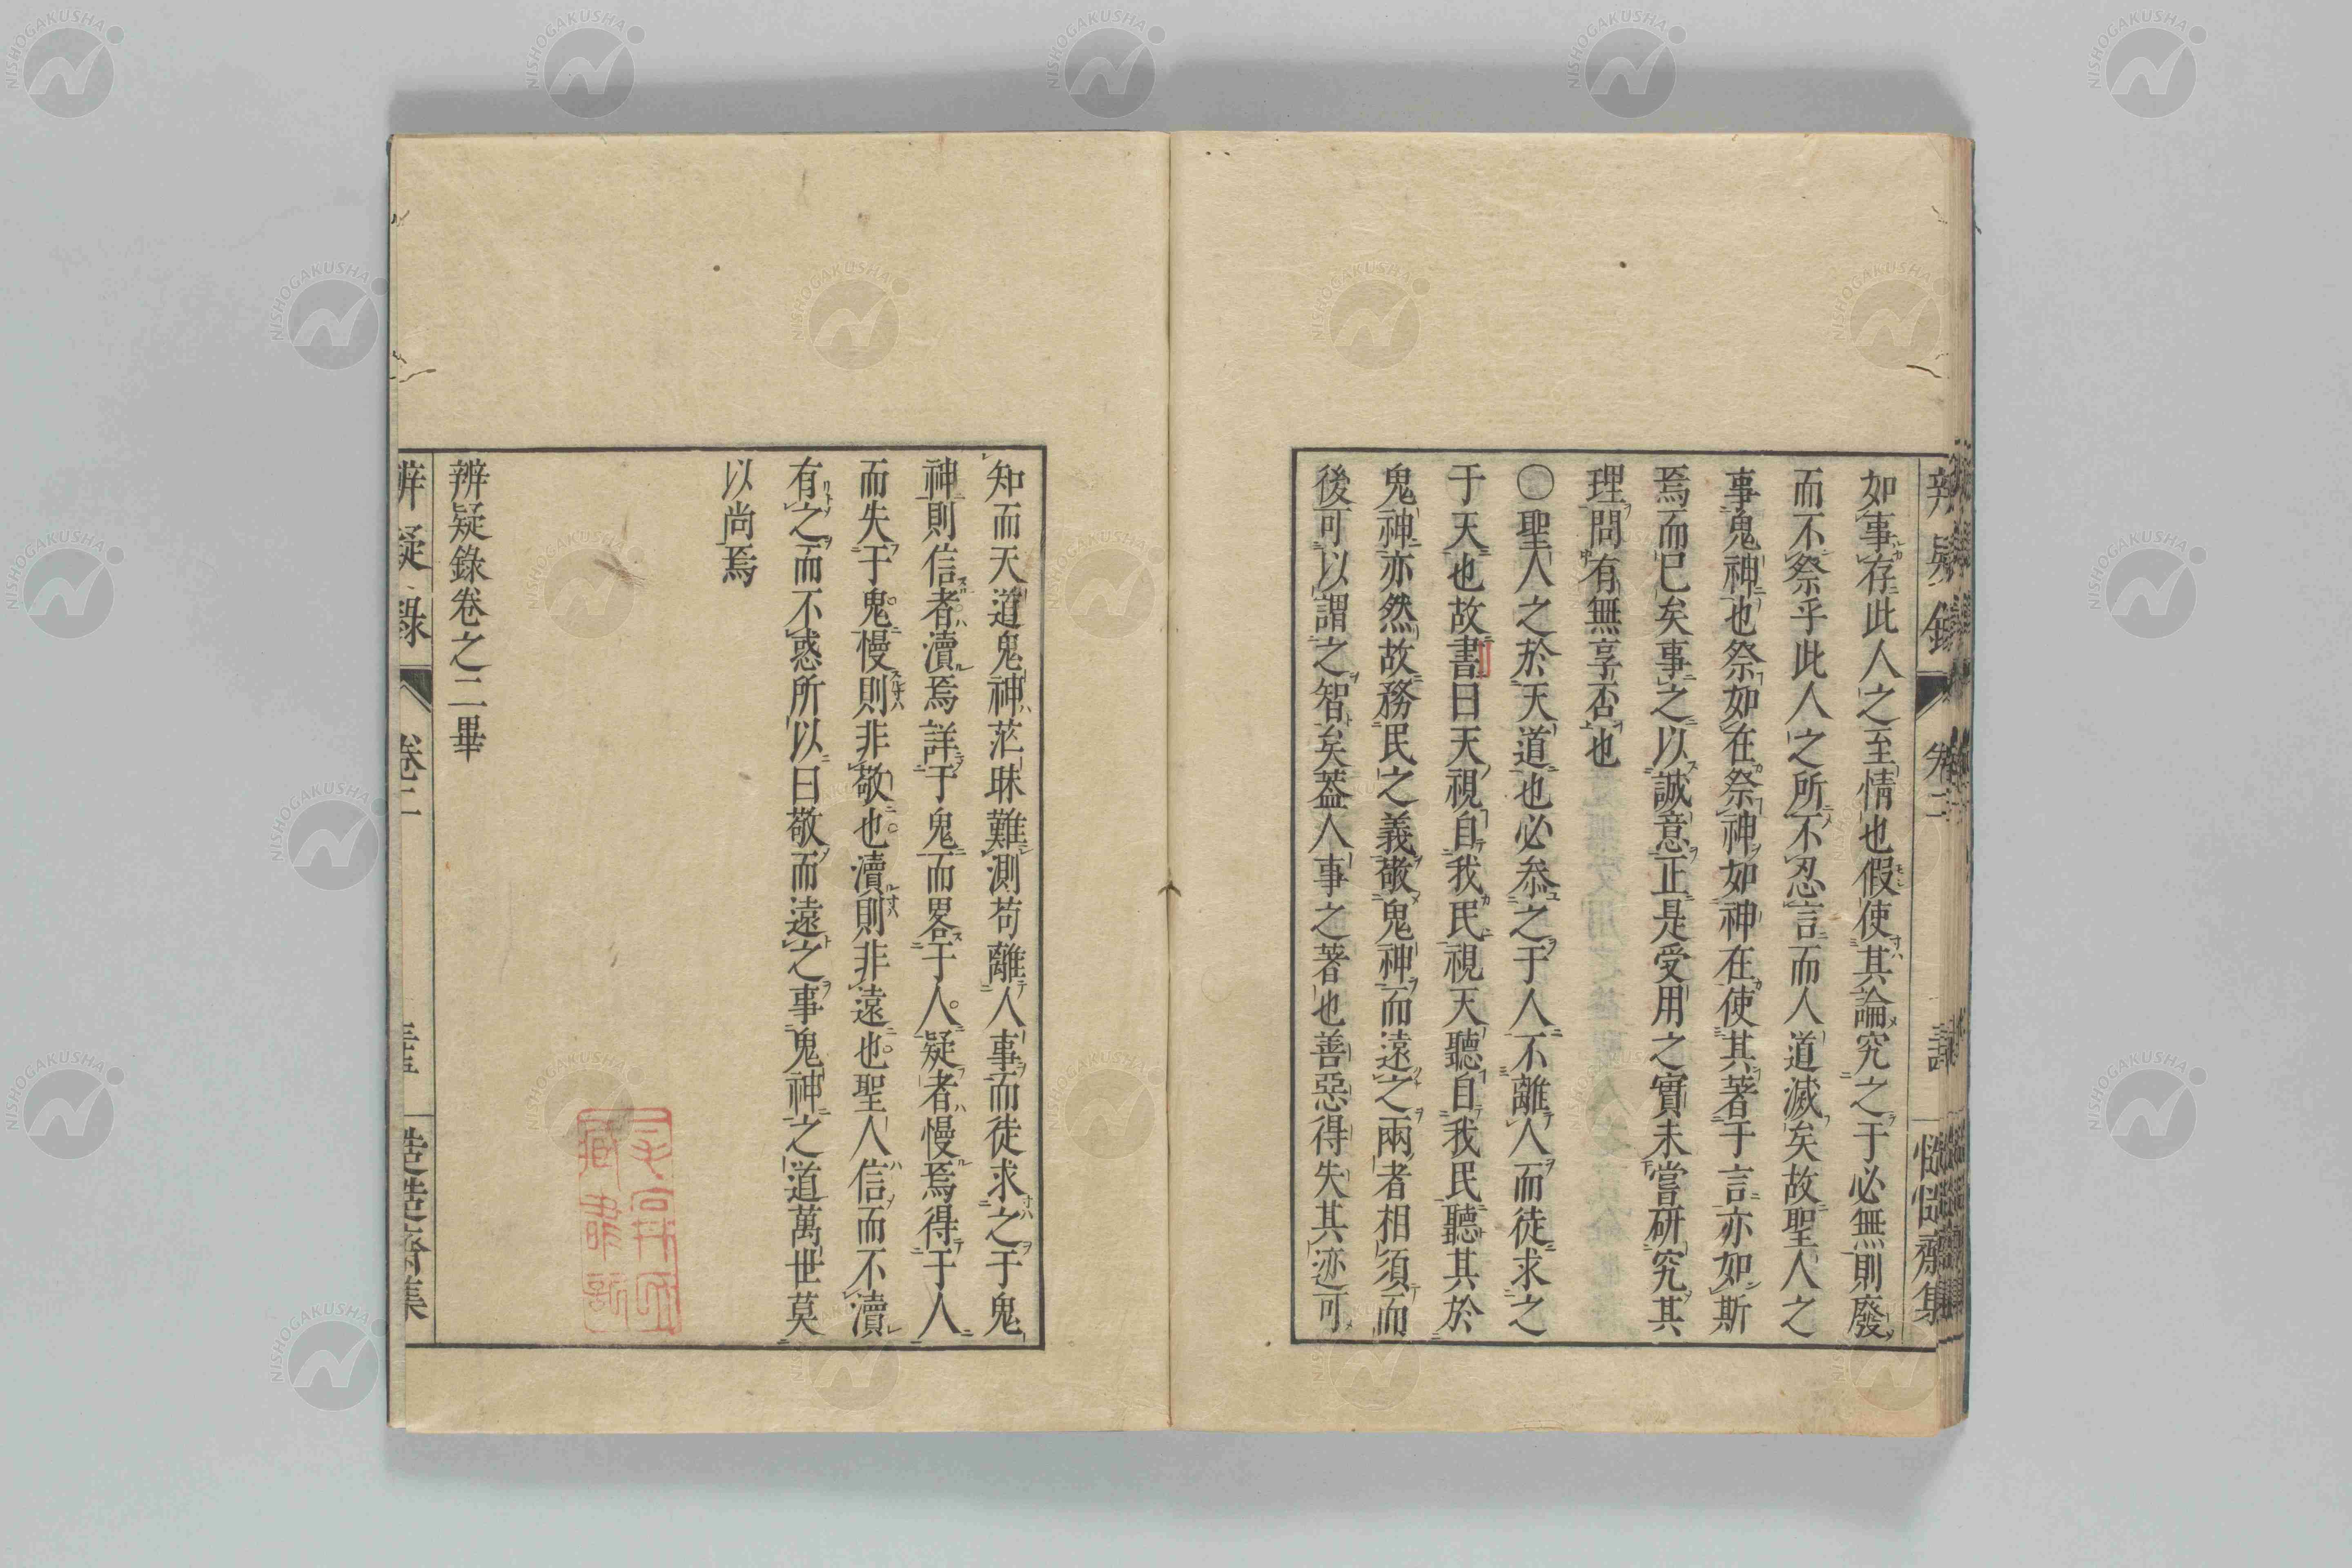 如事存此人之至情也假使其論究之于必無則廢
而不祭乎此人之所不忍言而人道滅矣故聖人之
事鬼神也祭如在祭神如神在使其著于言亦如斯
焉而已矣事之以誠意正是受用之實未嘗研究其
理問有無享否也
〇聖人之於天道也必叅之于人不離人而徒求之
于天也故書曰天視自我民視天聽自我民聽其於
鬼神亦然故務民之義敬鬼神而遠之兩者相須而
後可以謂之智矣蓋人事之著也善惡得失其迹可
知而天道鬼神茫昧難測苟離人事而徒求之于鬼
神則信者瀆焉詳于鬼而畧于人疑者慢焉得于人
而失于鬼慢則非敬也瀆則非遠也聖人信而不瀆
有之而不惑所以曰敬而遠之事鬼神之道萬世莫
以尚焉
辨疑錄卷之二畢
辨疑錄
卷二
慥慥齋集
NISHOGAKUSHA